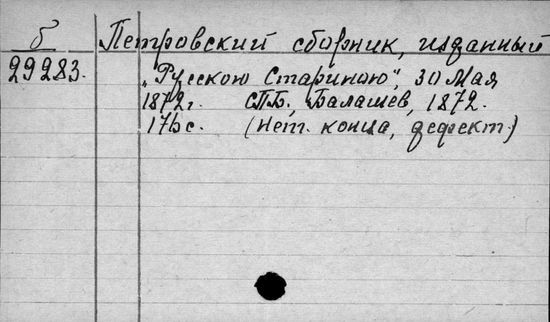 б Петровский сборник, изданный
29283. „Русскою Стариною", 30 Мая
1872г. СПБ, Балашев, 1872.
176 с. (Нет. конца, дефект.)